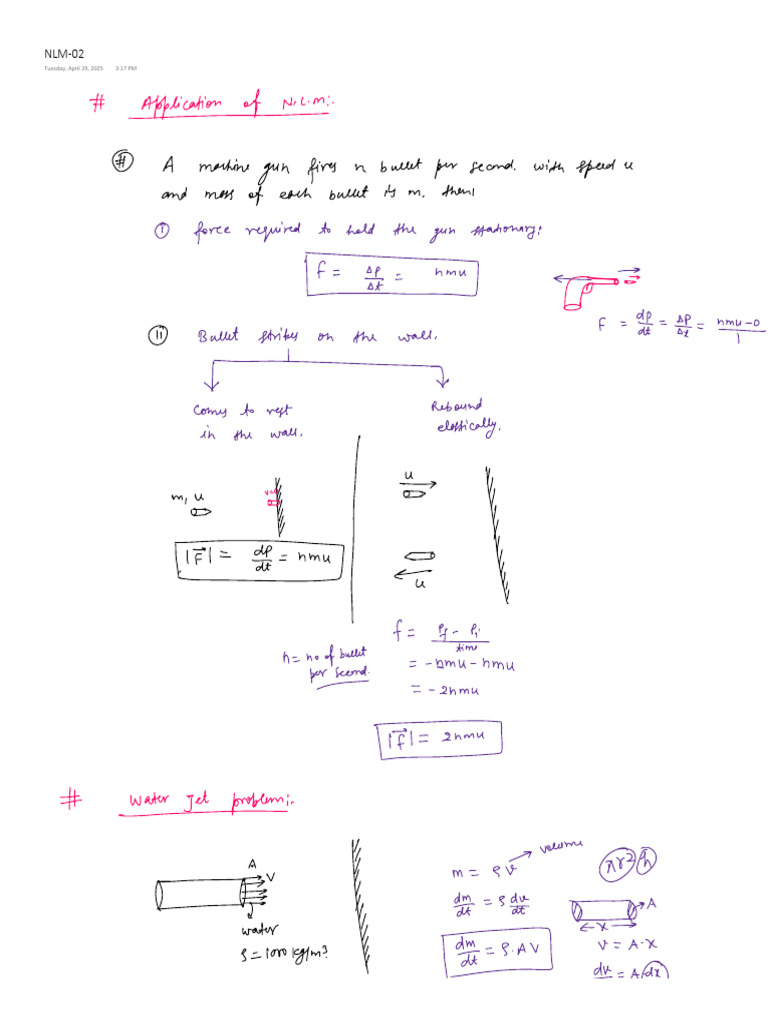 NLM-02
Tuesday, April 29, 2025 3:17 PM
# Application of N.L.M:.
# A machine gun fires n bullet per second. with speed u
and mass of each bullet is m. then:
(i) force required to hold the gun stationary:
f = Δp/Δt = nmu
F = dp/dt = Δp/Δt = nmu-0/1
(ii) Bullet strikes on the wall.
Comes to rest
in the wall.
Rebound
elastically.
m, u
u
|F⃗| = dp/dt = nmu
u
f = Pf - Pi/time
n = no of bullet
per second.
= -nmu - nmu
= -2nmu
|f⃗| = 2nmu
# Water Jet problem:.
A
V
water
ρ = 1000 kg/m³
m = ρV → volume
πr² h
dm/dt = ρ dv/dt
A
x
dm/dt = ρ.AV
V = A.x
dv = A dx